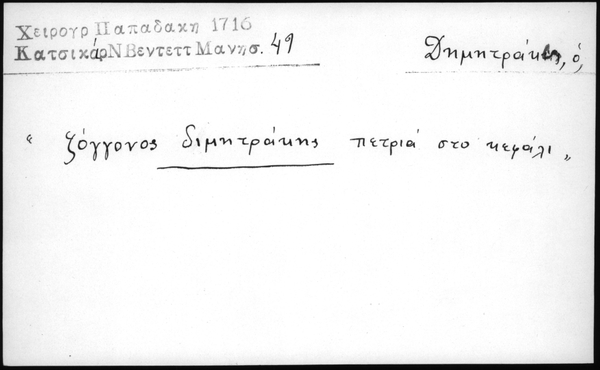 Χειρογρ Παπαδακη 1716
ΚατσικάρΝΒεντεττΜανησ. 49
Δημητράκης, ὁ,
" ζόγγονος διμητράκης πετριά στο κεφάλι "